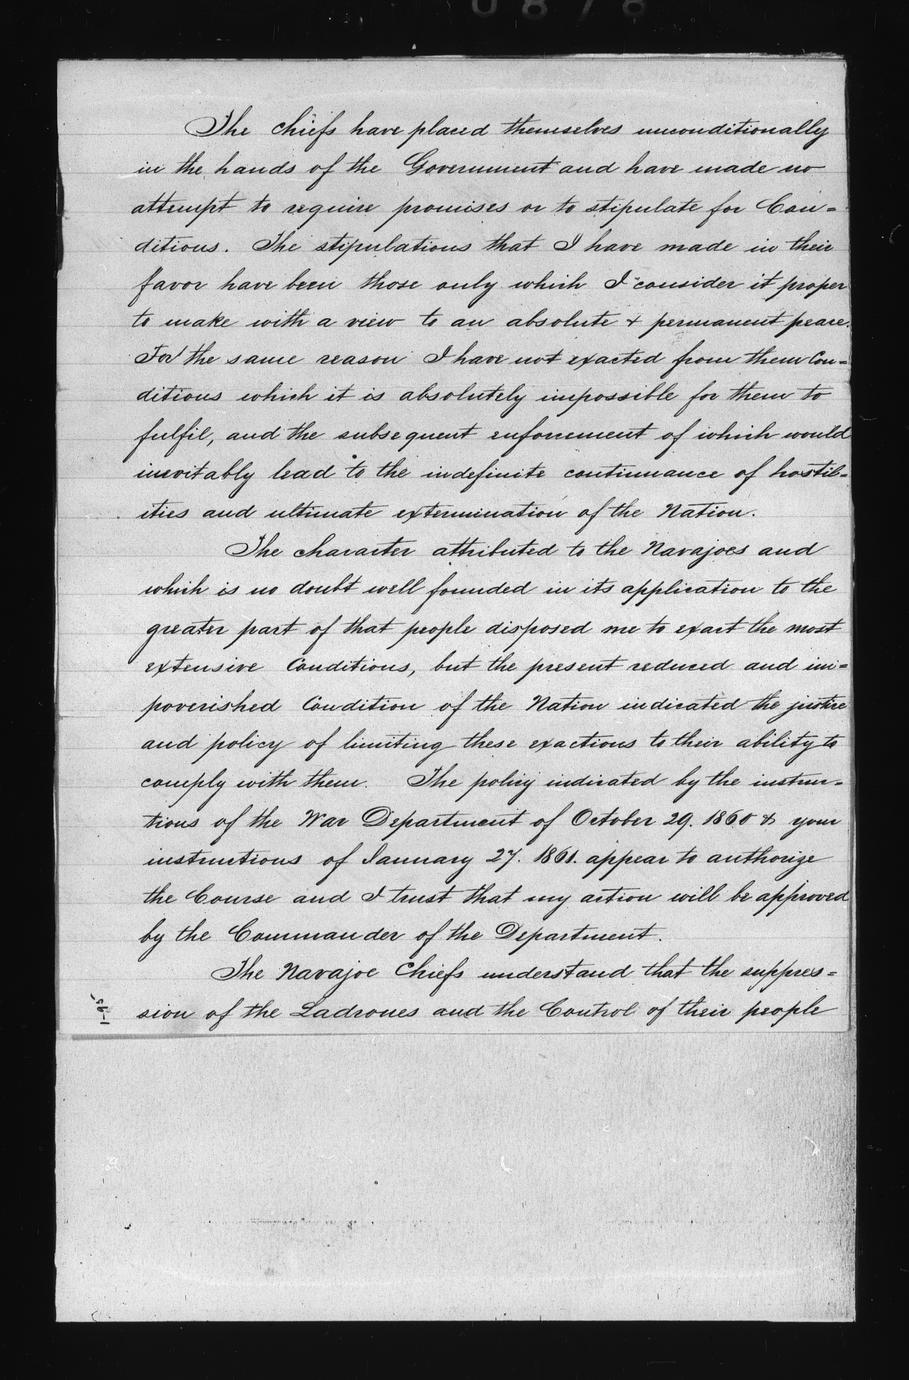 0878
The chiefs have placed themselves unconditionally
in the hands of the Government and have made no
attempt to require promises or to stipulate for Con=
ditions. The stipulations that I have made in their
favor have been those only which I consider it proper
to make with a view to an absolute & permanent peace.
For the same reason I have not exacted from them Con=
ditions which it is absolutely impossible for them to
fulfil, and the subsequent enforcement of which would
inevitably lead to the indefinite continuance of hostil=
ities and ultimate extermination of the Nation.
The character attributed to the Navajoes and
which is no doubt well founded in its application to the
greater part of that people disposed me to exact the most
extensive Conditions, but the present reduced and im=
poverished Condition of the Nation indicated the justice
and policy of limiting these exactions to their ability to
comply with them. The policy indicated by the instruc=
tions of the War Department of October 29. 1860 & your
instructions of January 27. 1861. appear to authorize
the Course and I trust that my action will be approved
by the Commander of the Department.
The Navajoe Chiefs understand that the suppres=
sion of the Ladrones and the Control of their people